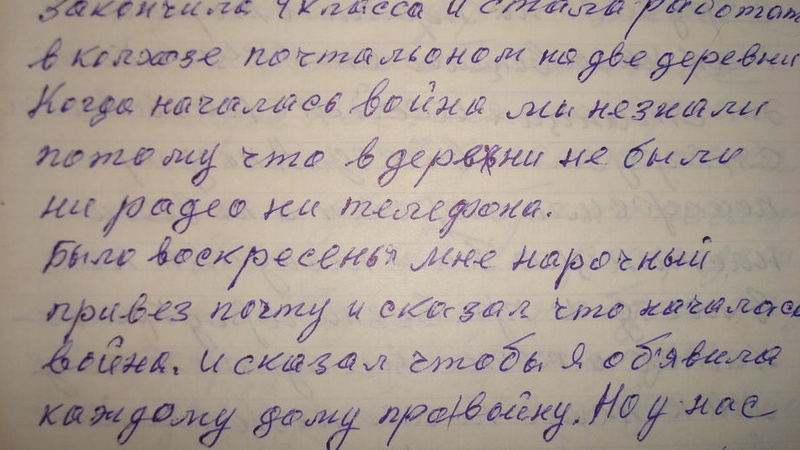 закончила 4 класса и стала работать
в колхозе почтальоном на две деревни
Когда началась война мы незнали
потому что в деревни не было
ни радео ни телефона.
Было воскресенья мне нарочный
привез почту и сказал что началась
война. И сказал чтобы я обявила
каждому дому про войну. Но у нас